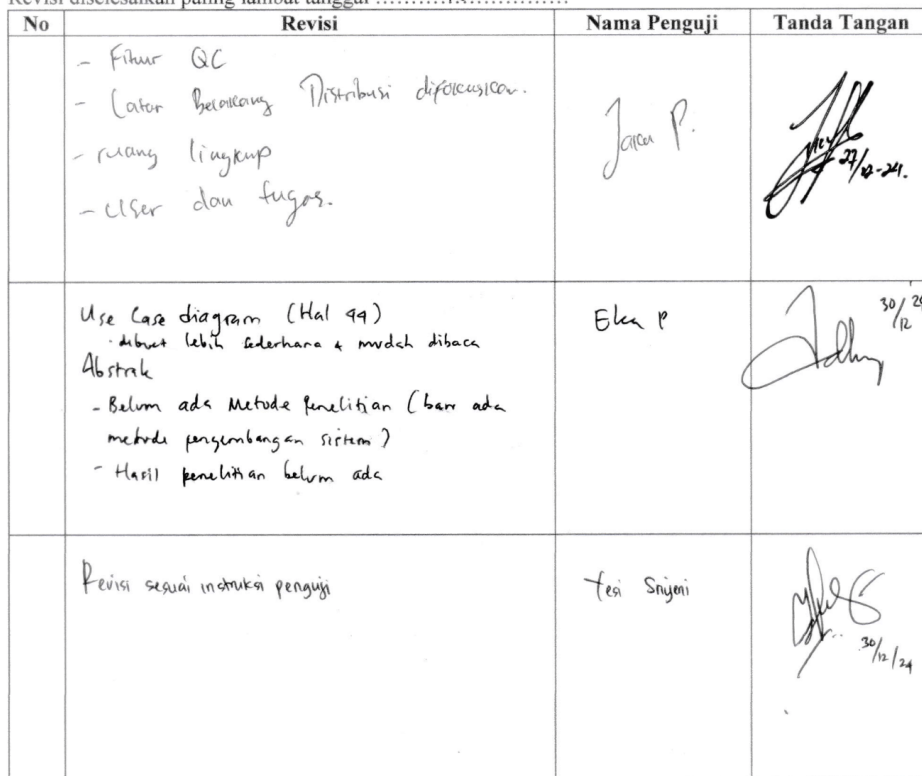 Revisi diselesaikan paling lambat tanggal ................................
No Revisi Nama Penguji Tanda Tangan
- Fitur QC
- Latar Belakang Distribusi difokuskan.
- ruang lingkup
- User dan tugas.
Jaka P.
27/12-24.
Use Case diagram (Hal 44)
· dibuat lebih sederhana & mudah dibaca
Abstrak
- Belum ada Metode Penelitian (baru ada
metode pengembangan sistem)
- Hasil penelitian belum ada
Eka P
30/12
Revisi sesuai instruksi penguji
Tesi Sriyeni
30/12/24